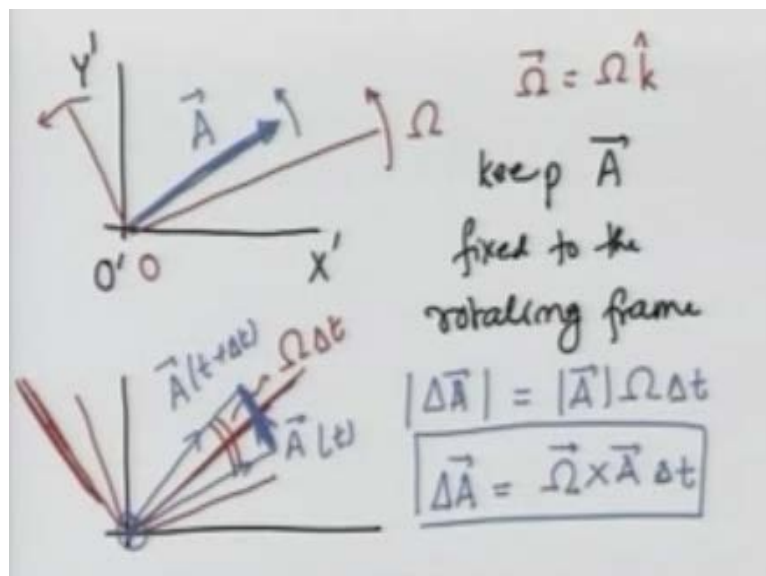 Y'
A⃗
Ω
O' O
X'
Ω⃗ = Ω k̂
keep A⃗
fixed to the
rotating frame
A⃗(t+Δt)
ΩΔt
A⃗(t)
|ΔA⃗| = |A⃗| Ω Δt
ΔA⃗ = Ω⃗ × A⃗ Δt